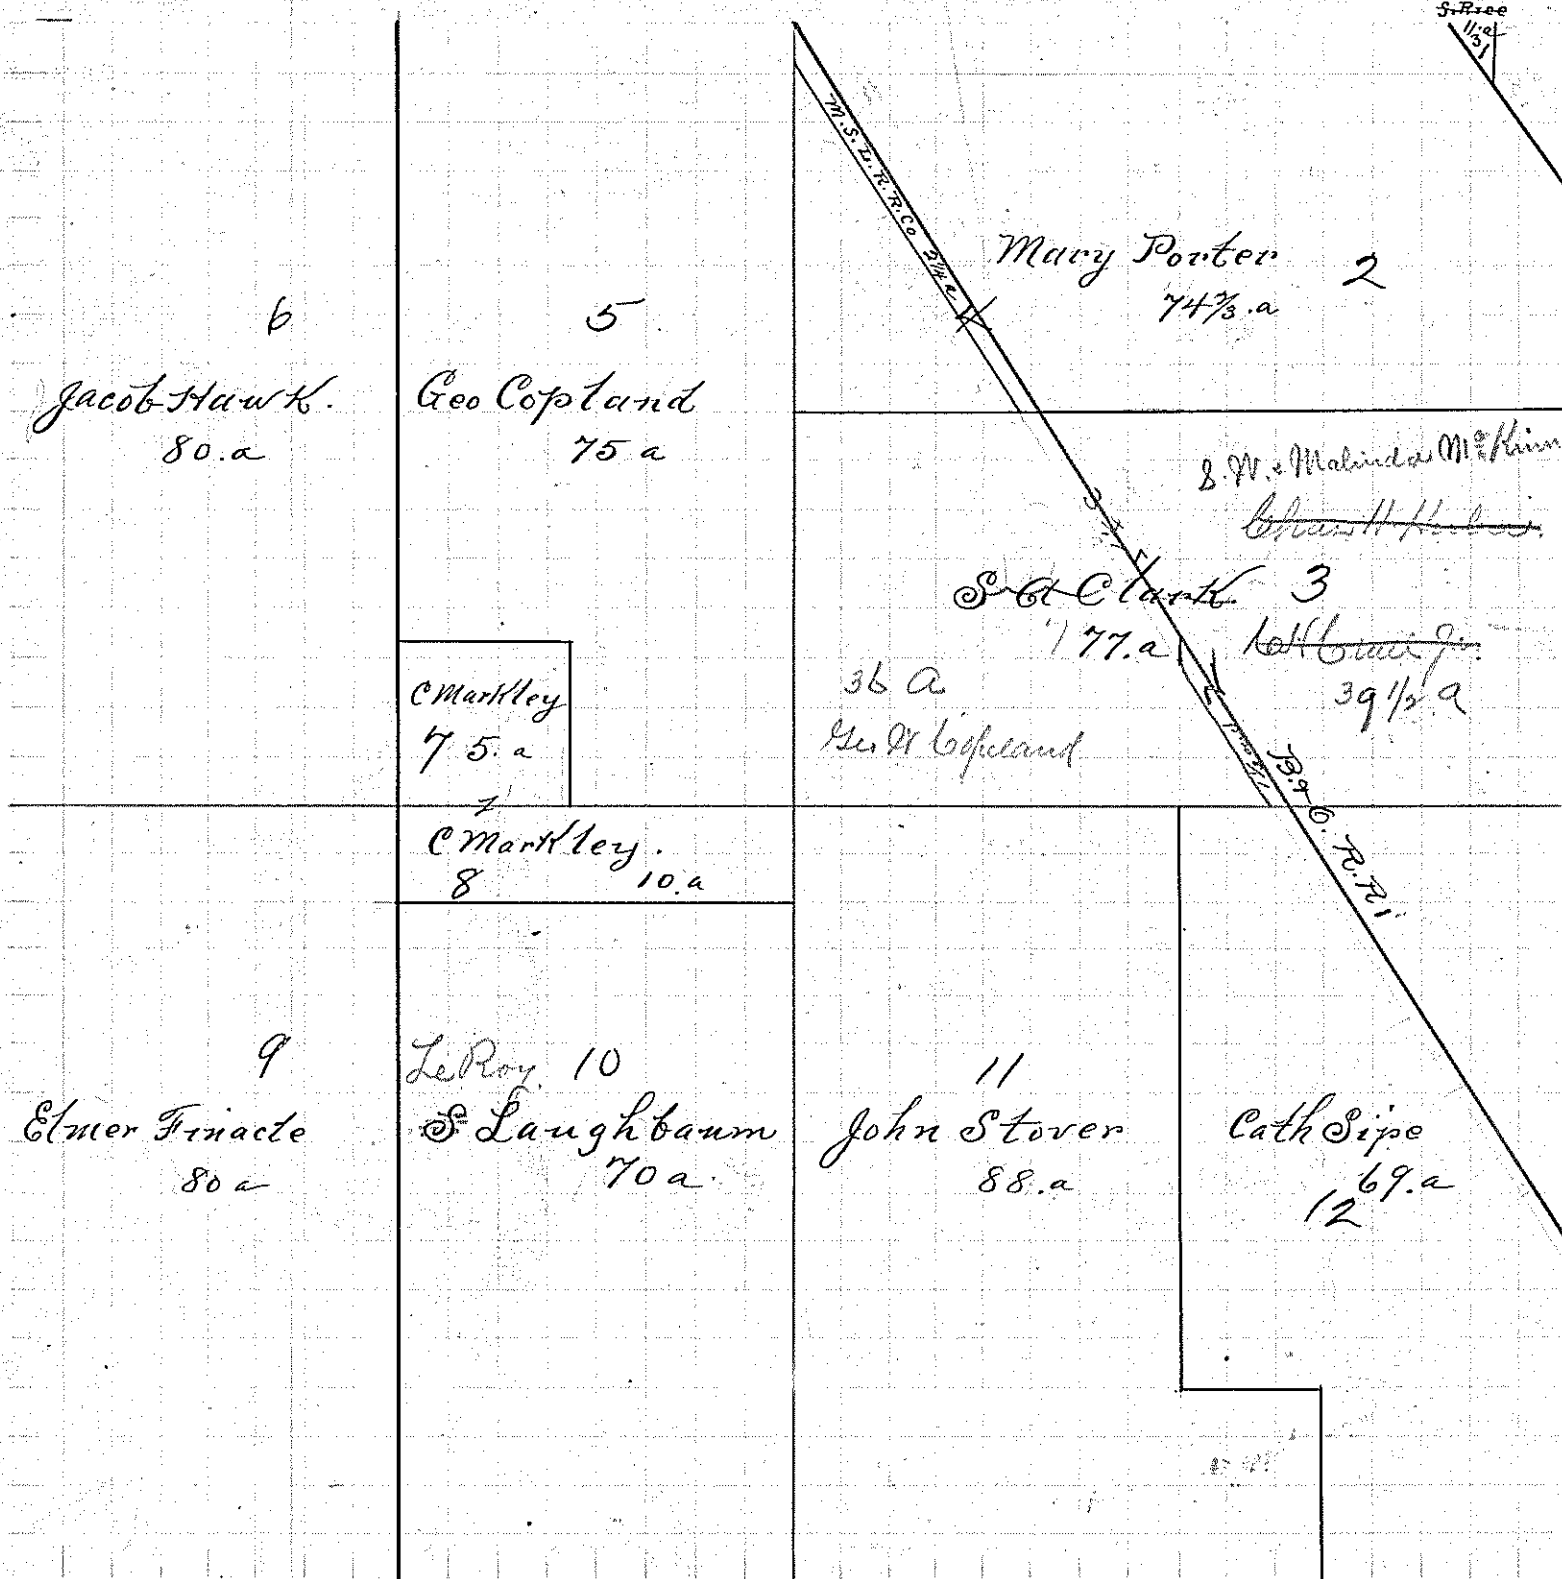 S. Rice
M.S.L.R.R.Co
Mary Porter 2
74 2/3.a
6
Jacob Hawk.
80.a
5
Geo Copland
75 a
S. W. & Malinda
3
S A Clark.
77.a
39 1/2 a
36 A
Geo W Copeland
C Markley
7 5.a
7
C Markley.
8 10.a
B. & O. R.R.
9
Elmer Finacle
80 a
LeRoy 10
S Laughbaum
70 a.
11
John Stover
88.a
Cath Sipe
69.a
12